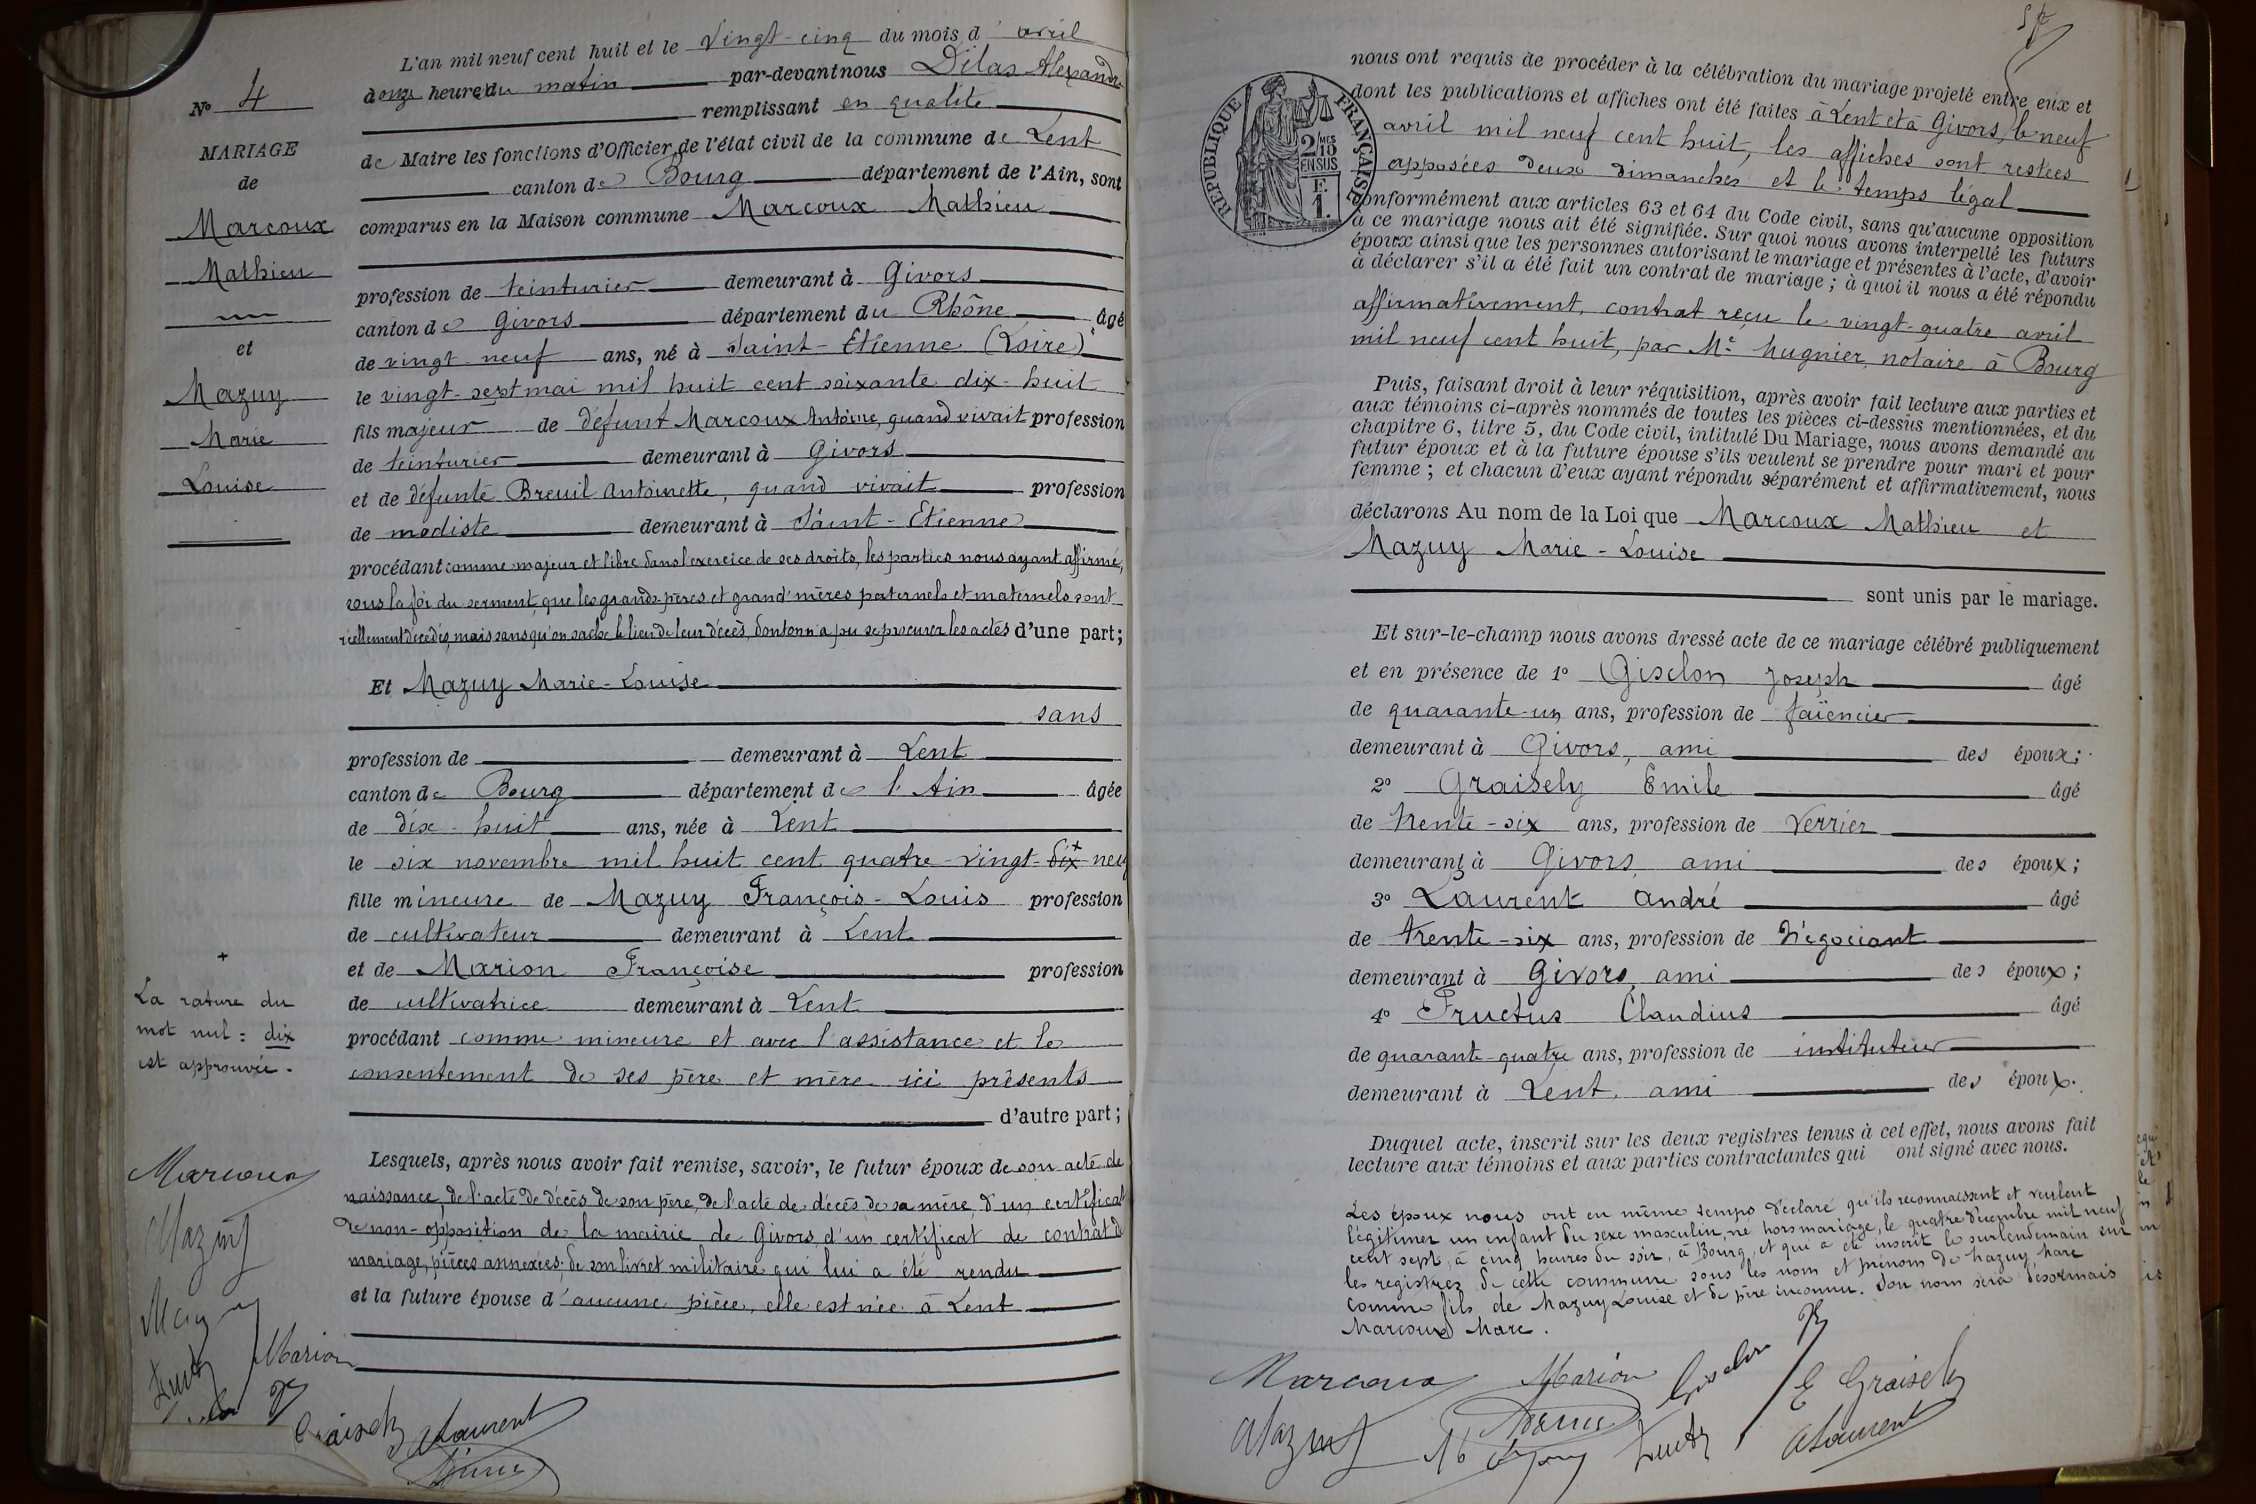 L'an mil neuf cent huit et le vingt-cinq du mois d'avril
onze heures du matin par-devant nous Dilas Alexandre
remplissant en qualité
de Maire les fonctions d'Officier de l'état civil de la commune de Lent
canton de Bourg département de l'Ain, sont
comparus en la Maison commune Marcoux Mathieu
profession de teinturier demeurant à Givors
canton de Givors département du Rhône âgé
de vingt-neuf ans, né à Saint-Etienne (Loire)
le vingt-sept mai mil huit cent soixante dix-huit
fils majeur de défunt Marcoux Antoine, quand vivait profession
de teinturier demeurant à Givors
et de défunte Breuil Antoinette, quand vivait profession
de modiste demeurant à Saint-Etienne
procédant comme majeur et libre dans l'exercice de ses droits, les parties nous ayant affirmé,
sous la foi du serment, que les grands-pères et grand'mères paternels et maternels sont
réellement décédés, mais sans qu'on sache le lieu de leur décès, dont on n'a pu se procurer les actes d'une part;
Et Mazuy Marie-Louise
sans
profession de demeurant à Lent
canton de Bourg département de l'Ain âgée
de dix-huit ans, née à Lent
le six novembre mil huit cent quatre-vingt-dix + neuf
fille mineure de Mazuy François-Louis profession
de cultivateur demeurant à Lent
et de Marion Françoise profession
de cultivatrice demeurant à Lent
procédant comme mineure et avec l'assistance et le
consentement de ses père et mère ici présents
d'autre part;
Lesquels, après nous avoir fait remise, savoir, le futur époux de son acte de
naissance, de l'acte de décès de son père, de l'acte de décès de sa mère, d'un certificat
de non-opposition de la mairie de Givors, d'un certificat de contrat de
mariage, pièces annexées; de son livret militaire qui lui a été rendu
et la future épouse d'aucune pièce, elle est née à Lent
N° 4
MARIAGE
de
Marcoux
Mathieu
et
Mazuy
Marie
Louise
+
La rature du
mot nul: dix
est approuvée.
Marcoux
Mazuy
Marion
Graisely
ALaurent
nous ont requis de procéder à la célébration du mariage projeté entre eux et
dont les publications et affiches ont été faites à Lent et à Givors, le neuf
avril mil neuf cent huit, les affiches sont restées
apposées deux dimanches et le temps légal
conformément aux articles 63 et 64 du Code civil, sans qu'aucune opposition
à ce mariage nous ait été signifiée. Sur quoi nous avons interpellé les futurs
époux ainsi que les personnes autorisant le mariage et présentes à l'acte, d'avoir
à déclarer s'il a été fait un contrat de mariage; à quoi il nous a été répondu
affirmativement, contrat reçu le vingt-quatre avril
mil neuf cent huit, par Me Hugnier, notaire à Bourg
Puis, faisant droit à leur réquisition, après avoir fait lecture aux parties et
aux témoins ci-après nommés de toutes les pièces ci-dessus mentionnées, et du
chapitre 6, titre 5, du Code civil, intitulé Du Mariage, nous avons demandé au
futur époux et à la future épouse s'ils veulent se prendre pour mari et pour
femme; et chacun d'eux ayant répondu séparément et affirmativement, nous
déclarons Au nom de la Loi que Marcoux Mathieu et
Mazuy Marie-Louise
sont unis par le mariage.
Et sur-le-champ nous avons dressé acte de ce mariage célébré publiquement
et en présence de 1° Gisclon Joseph âgé
de quarante-un ans, profession de faïencier
demeurant à Givors, ami des époux;
2° Graisely Emile âgé
de trente-six ans, profession de verrier
demeurant à Givors, ami des époux;
3° Laurent André âgé
de trente-six ans, profession de Négociant
demeurant à Givors, ami des époux;
4° Fructus Claudius âgé
de quarante-quatre ans, profession de instituteur
demeurant à Lent, ami des époux.
Duquel acte, inscrit sur les deux registres tenus à cet effet, nous avons fait
lecture aux témoins et aux parties contractantes qui ont signé avec nous.
Les époux nous ont en même temps déclaré qu'ils reconnaissent et veulent
légitimer un enfant du sexe masculin, né hors mariage, le quatre décembre mil neuf
cent sept, à cinq heures du soir, à Bourg, et qui a été inscrit le surlendemain sur
les registres de cette commune sous les nom et prénom de Mazuy Marc
comme fils de Mazuy Louise et de père inconnu. Son nom sera désormais
Marcoux Marc.
Marcoux
Marion
Gisclon
E Graisely
Mazuy
ALaurent
REPUBLIQUE FRANÇAISE
2/10MES
EN SUS
F.
1.